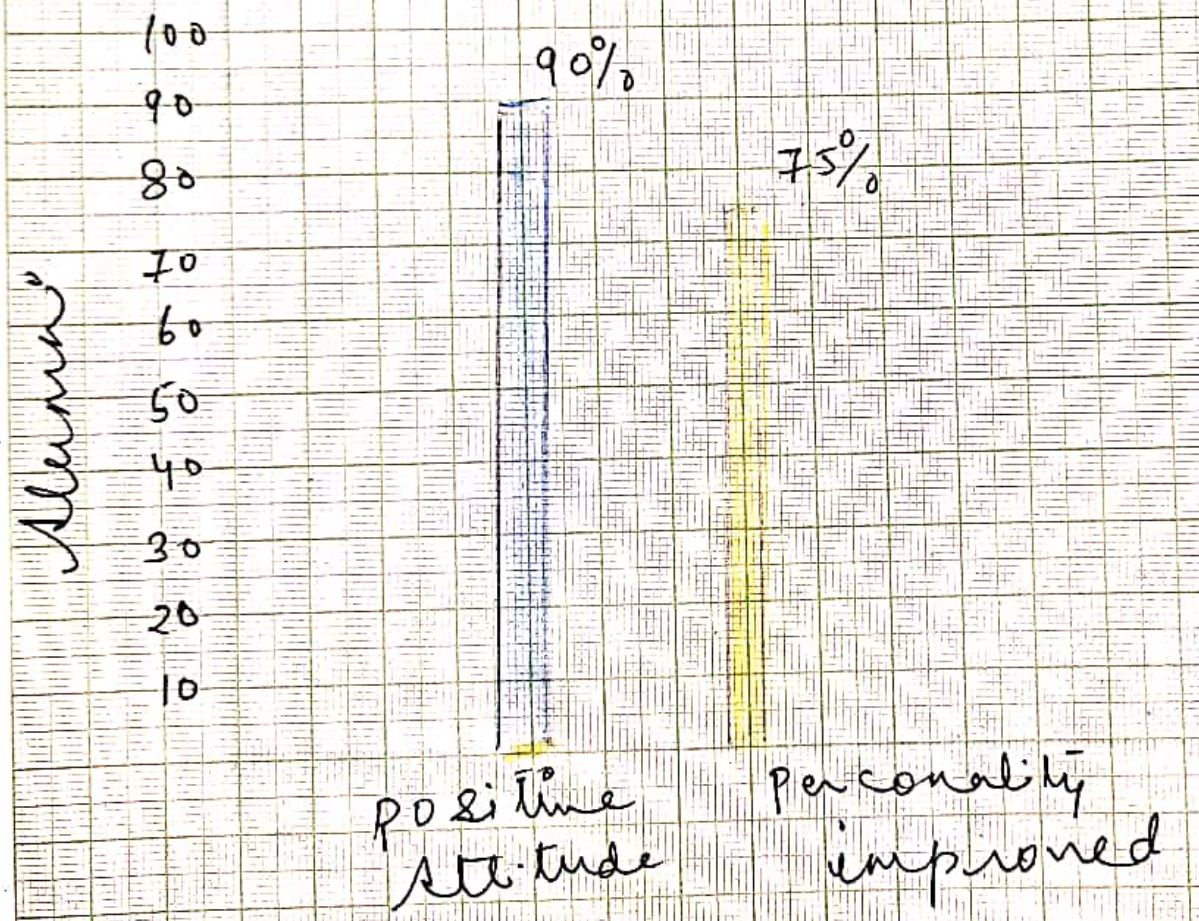 100
90%
90
75%
80
70
60
50
40
30
20
10
Alumni
Positive
Attitude
Personality
improved